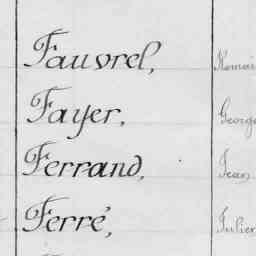 Fauvrel, Romai
Fayer, George
Ferrand, Jean
Ferré, Julien